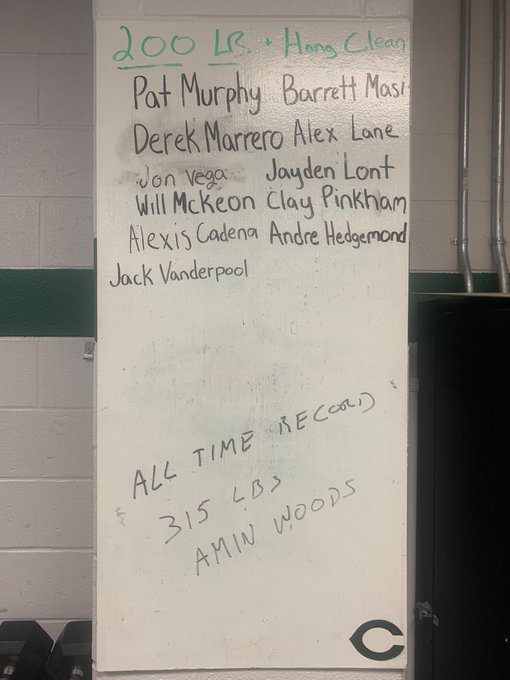 200 LB. + Hang Clean
Pat Murphy Barrett Masi
Derek Marrero Alex Lane
Jon Vega Jayden Lont
Will McKeon Clay Pinkham
Alexis Cadena Andre Hedgemond
Jack Vanderpool
ALL TIME RECORD
315 LBS
AMIN WOODS
C